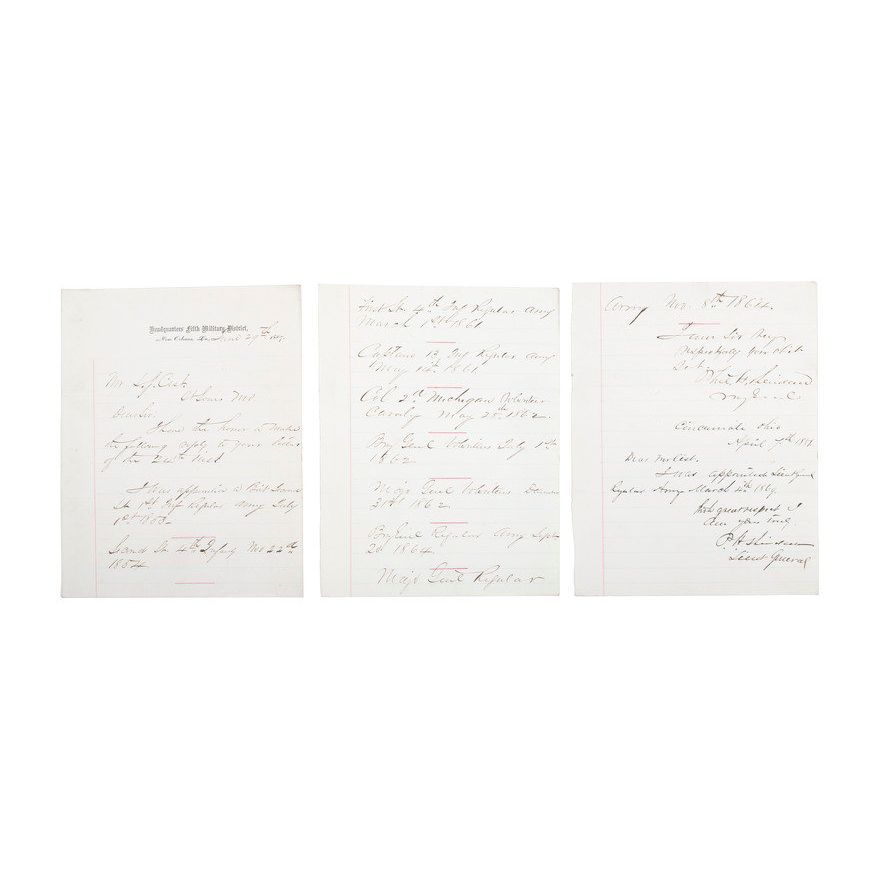 Headquarters Fifth Military District,
New Orleans, La., June 27th 1867.
Mr. L. J. Cist
St Louis Mo
Dear Sir:
I have the honor to make
the following reply to your letter
of the 24th inst
I was appointed a Brvt Second
Lt 1st Inf Regular Army July
1st 1853.
Second Lt. 4th Infty Nov 22nd
1854
First Lt. 4th Inf Regular Army
March 1st 1861
Captain 13 Inf Regular army
May 14th 1861
Col 2d Michigan Volunteer
Cavalry May 25th 1862.
Brig Genl Volunteers July 1st
1862
Major Genl Volunteers Decem
31st 1862
Brig Genl Regular Army Sept
20 1864
Major Genl Regular
Army Nov. 8th 1864.
I am Sir Very
Respectfully your Obt
Svt.
Phil H. Sheridan
Maj Genl
Cincinnati Ohio
April 7th
Dear Mr Cist.
I was appointed Lieut Genl
Regular Army March 4th 1869.
With great respect I
am yours truly
P. H. Sheridan
Lieut General